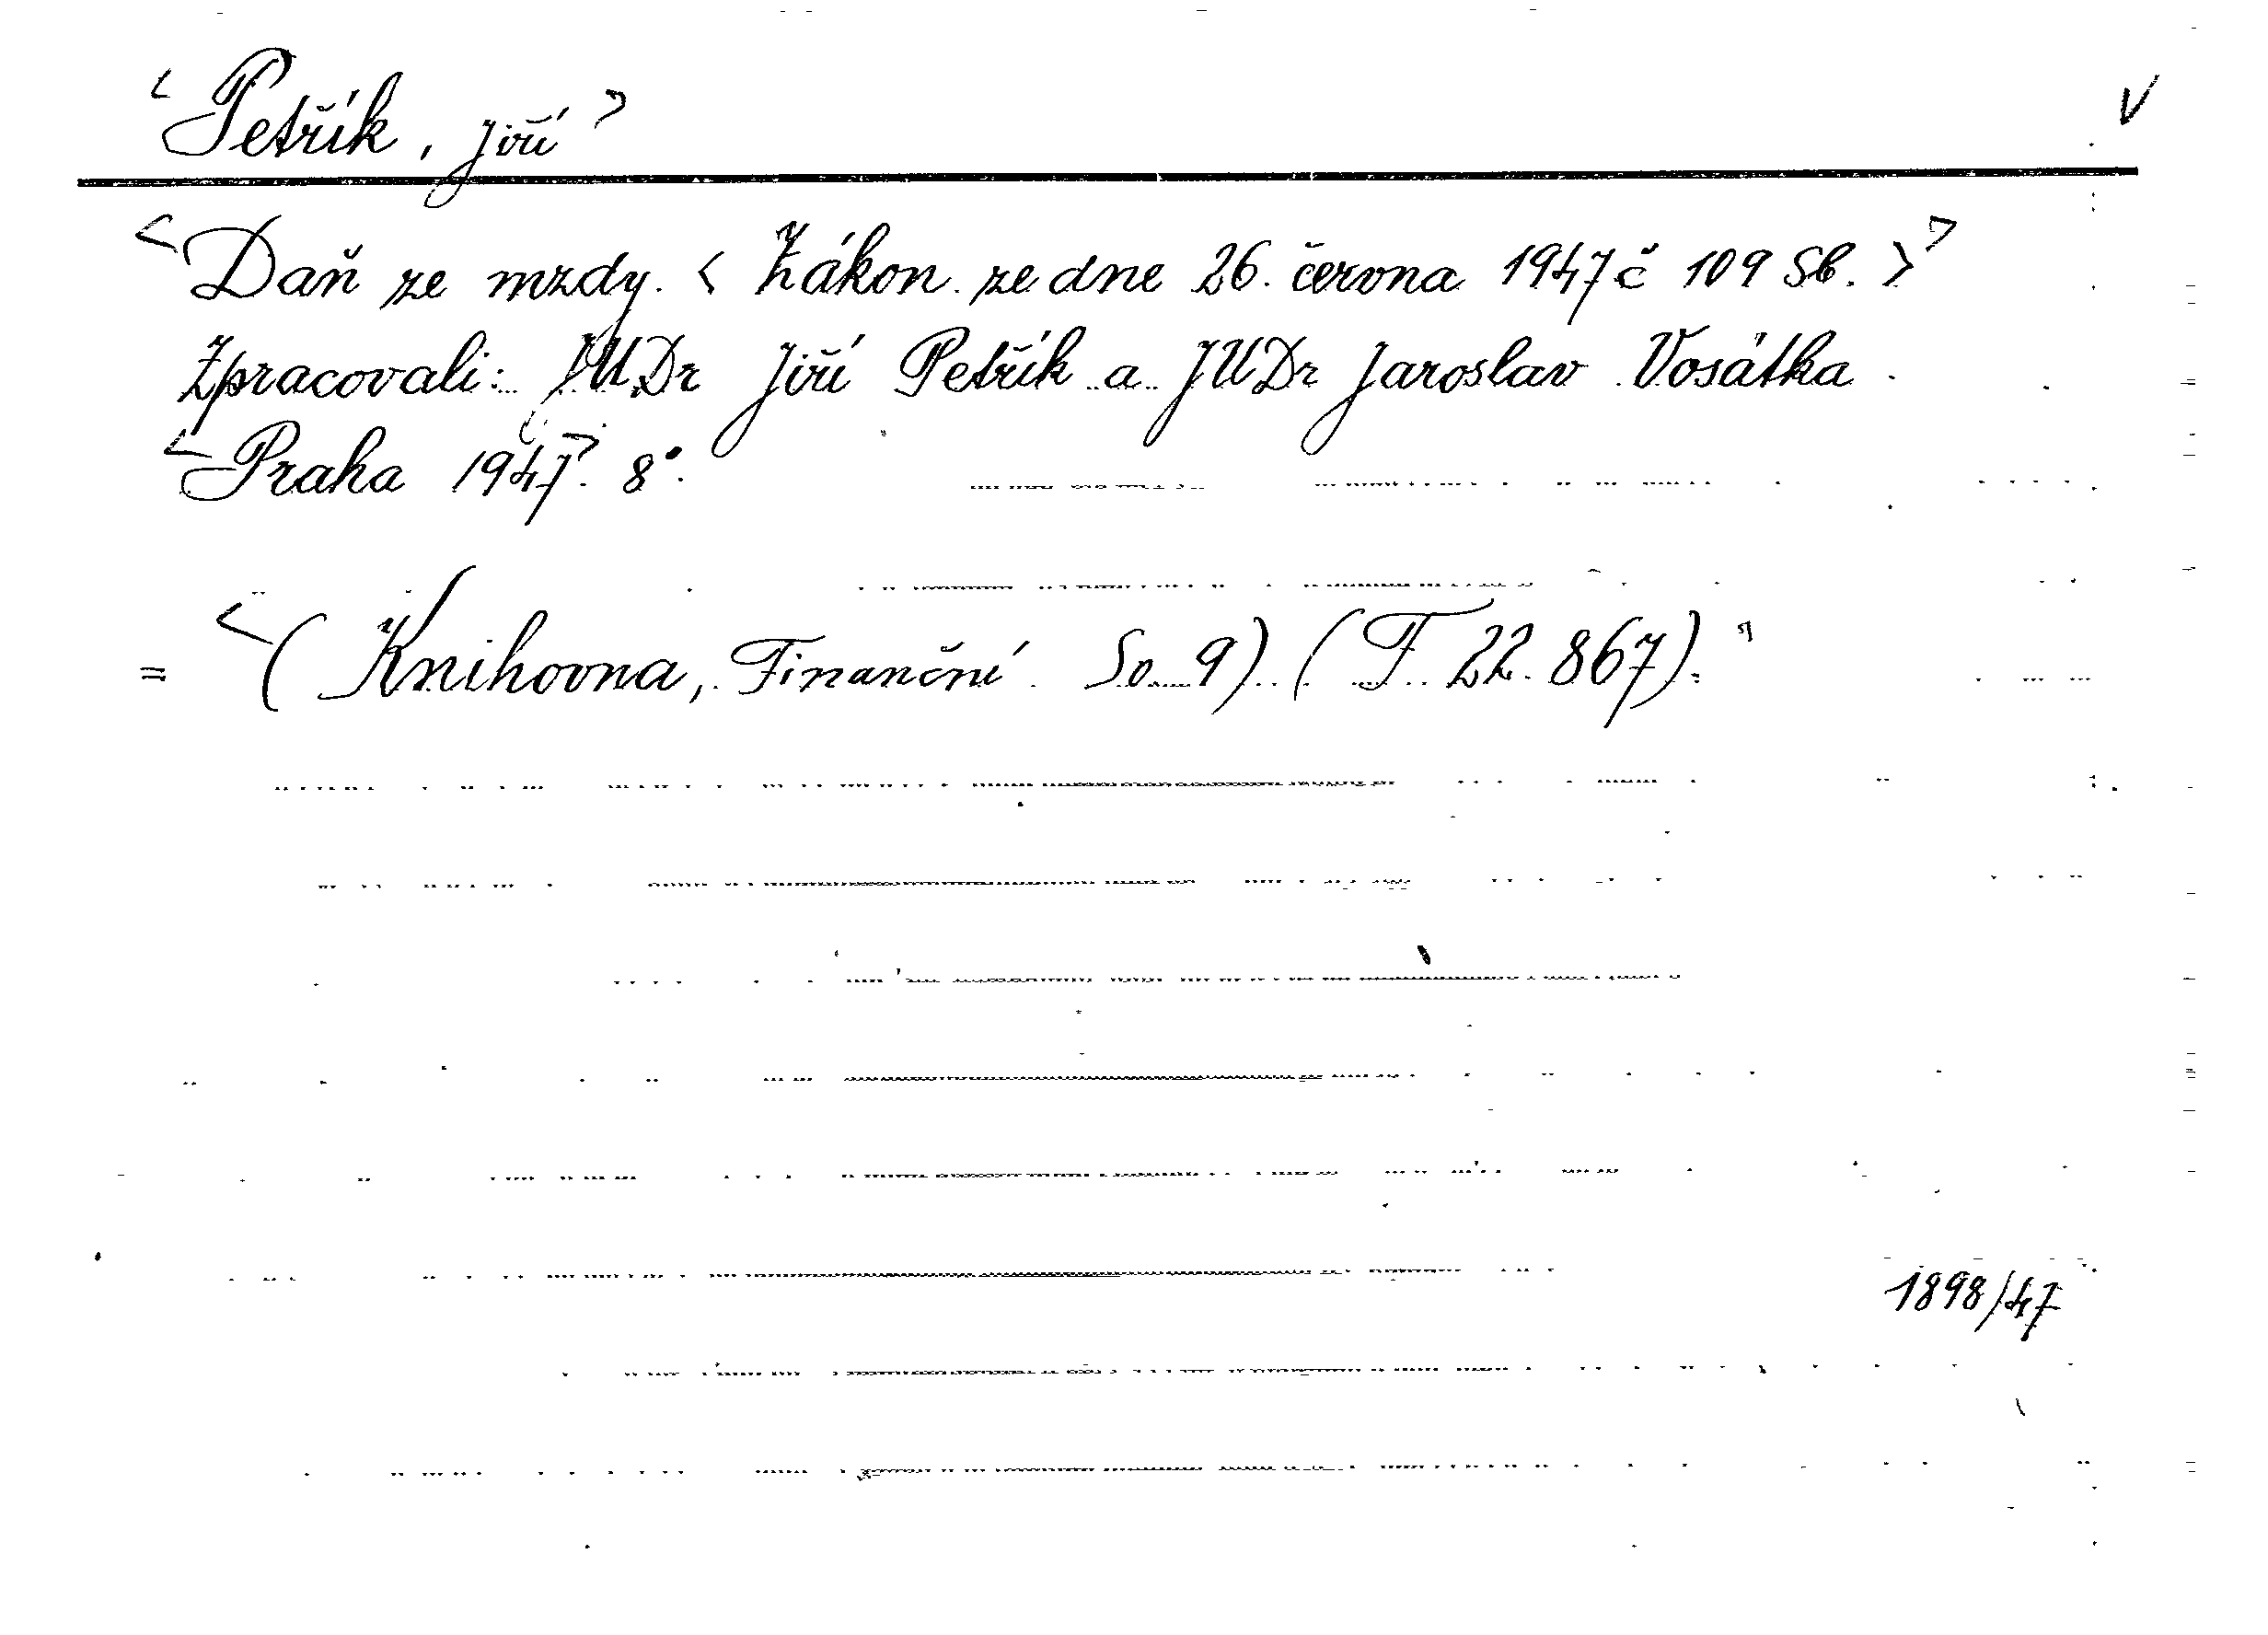 <Petřík, Jiří> V
<Daň ze mzdy. <Zákon ze dne 26. června 1947 č 109 Sb.>>
Zpracovali: JUDr Jiří Petřík a JUDr Jaroslav Vosátka.
<Praha 1947>. 8°.
= <(Knihovna, Finanční So 9) (F 22.867).>
1898/47